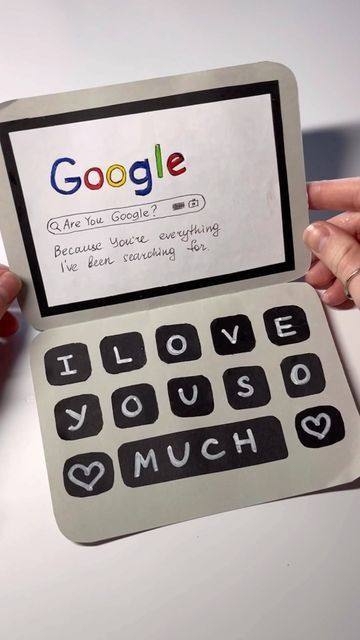 Google
Are You Google?
Because You're everything
I've been searching for.
I LOVE
YOU SO
MUCH